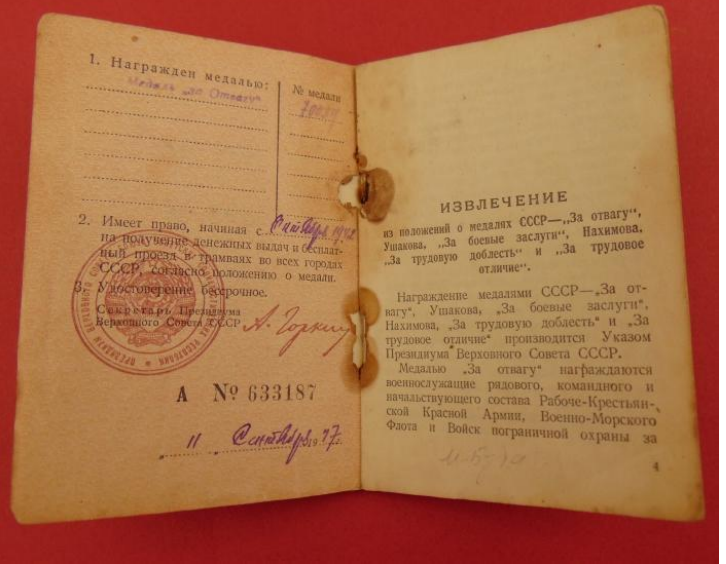 1. Награжден медалью:
Медаль „за Отвагу"
№ медали
2. Имеет право, начиная с
на получение денежных выдач и бесплат-
ный проезд в трамваях во всех городах
СССР, согласно положению о медали.
3. Удостоверение бессрочное.
Секретарь Президиума
Верховного Совета СССР
А. Горкин
А № 633187
11 Сентября 1947 г.
ИЗВЛЕЧЕНИЕ
из положений о медалях СССР—„За отвагу“,
Ушакова, „За боевые заслуги“, Нахимова,
„За трудовую доблесть“ и „За трудовое
отличие“.
Награждение медалями СССР—„За от-
вагу“, Ушакова, „За боевые заслуги“,
Нахимова, „За трудовую доблесть“ и „За
трудовое отличие“ производится Указом
Президиума Верховного Совета СССР.
Медалью „За отвагу“ награждаются
военнослужащие рядового, командного и
начальствующего состава Рабоче-Крестьян-
ской Красной Армии, Военно-Морского
Флота и Войск пограничной охраны за
4